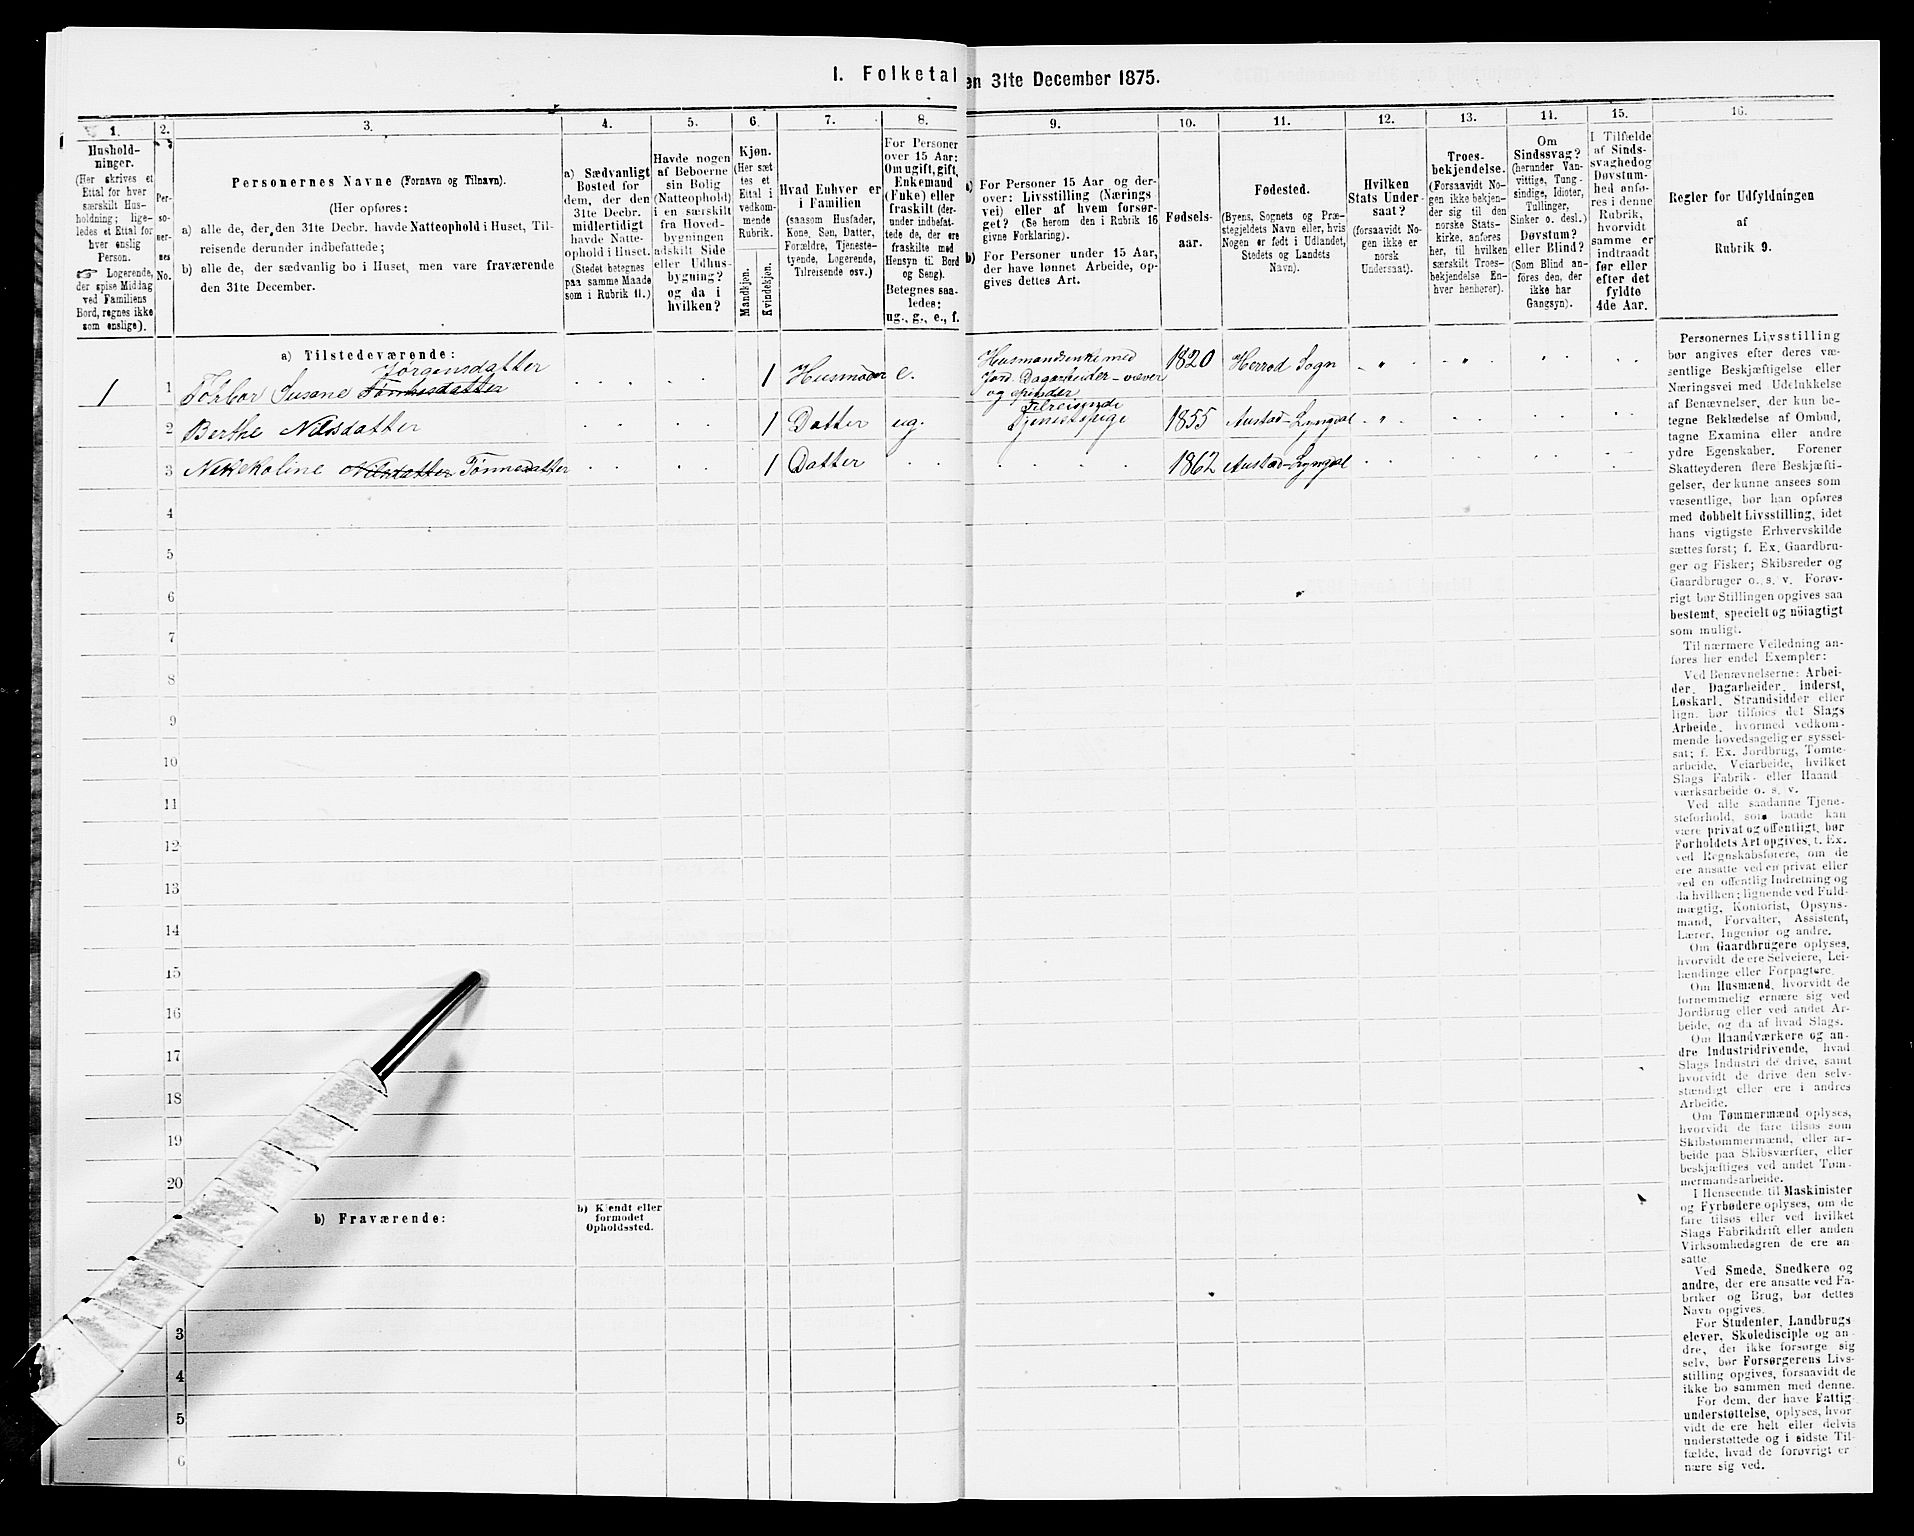 I. Folketal
en 31te December 1875.
1.
Hushold-
ninger.
(Her skrives et
Ettal for hver
særskilt Hus-
holdning; lige-
ledes et Ettal for
hver enslig
Person.
☞ Logerende,
der spise Middag
ved Familiens
Bord, regnes ikke
som enslige).
2.
Per-
so-
ner-
nes
No.
3.
Personernes Navne (Fornavn og Tilnavn).
(Her opføres:
a) alle de, der den 31te Decbr. havde Natteophold i Huset, Til-
reisende derunder indbefattede;
b) alle de, der sædvanlig bo i Huset, men vare fraværende
den 31te December.
4.
a) Sædvanligt
Bosted for
dem, der den
31te Decbr.
midlertidigt
havde Natte-
ophold i Huset.
(Stedet betegnes
paa samme Maade
som i Rubrik 11.)
5.
Havde nogen
af Beboerne
sin Bolig
(Natteophold)
i en særskilt
fra Hoved-
bygningen
adskilt Side
eller Udhus-
bygning?
og da i
hvilken?
6.
Kjøn.
(Her sæt
tes et
Ettal i
vedkom-
mende
Rubrik.
Mandkjøn.
Kvindekjøn.
7.
Hvad Enhver er
i Familien
(saasom Husfader,
Kone, Søn, Datter,
Forældre, Tjeneste-
tyende, Logerende,
Tilreisende osv.)
8.
For Personer
over 15 Aar:
Om ugift, gift,
Enkemand
(Enke) eller
fraskilt (der-
under indbefat-
tede de, der ere
fraskilte med
Hensyn til Bord
og Seng).
Betegnes saa-
ledes:
ug., g., e., f.
9.
a) For Personer 15 Aar og der-
over: Livsstilling (Nærings
vei) eller af hvem forsør-
get? (Se herom den i Rubrik 16
givne Forklaring).
b) For Personer under 15 Aar,
der have lønnet Arbeide, op-
gives dettes Art.
10.
Fødsels-
aar.
11.
Fødested.
(Byens, Sognets og Præ-
stegjeldets Navn eller, hvis
Nogen er født i Udlandet,
Stedets og Landets
Navn).
12.
Hvilken
Stats Under-
saat?
(forsaavidt No-
gen ikke er
norsk
Undersaat).
13.
Troes-
bekjendelse.
(Forsaavidt No-
gen ikke bekjen-
der sig til den
norske Stats-
kirke, anføres
her, til hvilken
særskilt Troes-
bekjendelse En-
hver henhører).
14.
Om
Sindssvag?
(herunder Van-
vittige, Tung-
sindige, Idioter,
Tullinger,
Sinker o. desl.)
Døvstum?
eller Blind?
(Som Blind an-
føres den, der
ikke har
Gangsyn).
15.
I Tilfælde
af Sinds-
svaghed og
Døvstum-
hed anfø-
res i denne
Rubrik,
hvorvidt
samme er
indtraadt
før eller
efter det
fyldte
4de Aar.
16.
Regler for Udfyldningen
af
Rubrik 9.
a) Tilstedeværende:
Jørgensdatter
1 1 Torbor Susane Tønnesdatter 1 Husmoder e. Husmandsenke med Jord. Dagarbeider - væver og spinder 1820 Herred Sogn
2 Berthe Nilsdatter 1 Datter ug. Tilreisende Tjenestepige 1855 Austad-Lyngdal
3 Nilsdatter Tønnesdatter 1 Datter 1862 Austad-Lyngdal
4
5
6
7
8
9
10
11
12
13
14
15
16
17
18
19
20
b) Fraværende:
b) Kjendt eller
formodet
Opholdssted.
3
4
5
6
Personernes Livsstilling
bør angives efter deres væ-
sentlige Beskjæftigelse eller
Næringsvei med Udelukkelse
af Benævnelser, der kun be-
tegne Beklædelse af Ombud,
tagne Examina eller andre
ydre Egenskaber. Forener
Skatteyderen flere Beskjæfti-
gelser, der kunne ansees som
væsentlige, bør han opføres
med dobbelt Livsstilling, idet
hans vigtigste Erhvervskilde
sættes først; f. Ex. Gaardbru-
ger og Fisker; Skibsreder og
Gaardbruger o. s. v. Forøv-
rigt bør Stillingen opgives saa
bestemt, specielt og nøiagtigt
som muligt.
Til nærmere Veiledning an-
føres her endel Exempler:
Ved Benævnelserne: Arbei-
der, Dagarbeider, Inderst,
Løskarl, Strandsidder eller
lign. bør tilføies det Slags
Arbeide, hvormed vedkom-
mende hovedsagelig er syssel-
sat; f. Ex. Jordbrug, Tomte-
arbeide, Veiarbeide, hvilket
Slags Fabrik- eller Haand-
værksarbeide o. s. v.
Ved alle saadanne Tjene-
steforhold, som baade kan
være privat og offentligt, bør
Forholdets Art opgives, t. Ex.
ved Regnskabsførere, om de
ere ansatte ved en privat eller
ved en offentlig Indretning og
da hvilken; lignende ved Fuld-
mægtig, Kontorist, Opsyns-
mand, Forvalter, Assistent,
Lærer, Ingeniør og andre.
Om Gaardbrugere oplyses,
hvorvidt de ere Selveiere, Lei-
lændinge eller Forpagtere.
Om Husmænd, hvorvidt de
fornemmelig ernære sig ved
Jordbrug eller ved andet Ar-
beide, og da af hvad Slags.
Om Haandværkere og an-
dre Industridrivende, hvad
Slags Industri de drive, samt
hvorvidt de drive den selv-
stændigt eller ere i andres
Arbeide.
Om Tømmermænd oplyses,
hvorvidt de fare tilsøs som
Skibstømmermænd, eller ar-
beide paa Skibsværfter, eller
beskjæftiges ved andet Tøm-
mermandsarbeide.
I Henseende til Maskinister
og Fyrbødere oplyses, om de
fare tilsøs eller ved hvilket
Slags Fabrikdrift eller anden
Virksomhedsgren de ere an-
satte.
Ved Smede, Snedkere og
andre, der ere ansatte ved Fa-
briker og Brug, bør dettes
Navn opgives.
For Studenter, Landbrugs
elever, Skoledisciple og an-
dre, der ikke forsørge sig
selv, bør Forsørgerens Livs-
stilling opgives, forsaavidt de
ikke bo sammen med denne.
For dem, der have Fattig-
understøttelse, oplyses, hvor
vidt de ere helt eller delvis
understøttede og i sidste Til-
fælde, hvad de forøvrigt er
nære sig ved.